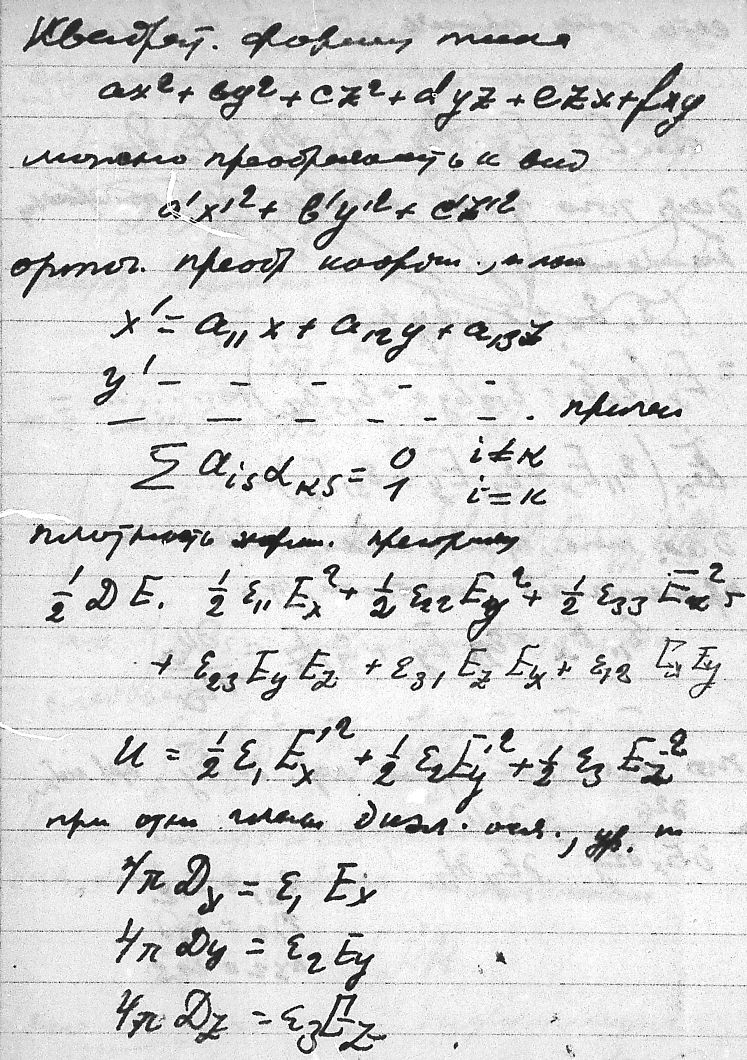 Квадрат. форму типа
ax² + by² + cz² + dyz + ezx + fxy
можно преобразовать к виду
a'x'² + b'y'² + c'z'²
ортог. преобр коорд.,
x' = a₁₁x + a₁₂y + a₁₃z
y' – – – – –
– – – – – – . причем
∑ a_{is} a_{ks} = 0 i≠k
1 i=k
плотность энергии
½ D E. ½ ε₁₁ E_x² + ½ ε₂₂ E_y² + ½ ε₃₃ E_z² +
+ ε₂₃ E_y E_z + ε₃₁ E_z E_x + ε₁₂ E_x E_y
u = ½ ε₁ E_x'² + ½ ε₂ E_y'² + ½ ε₃ E_z'²
при этом главн диэл. оси., ур.
4π D_x = ε₁ E_x
4π D_y = ε₂ E_y
4π D_z = ε₃ E_z